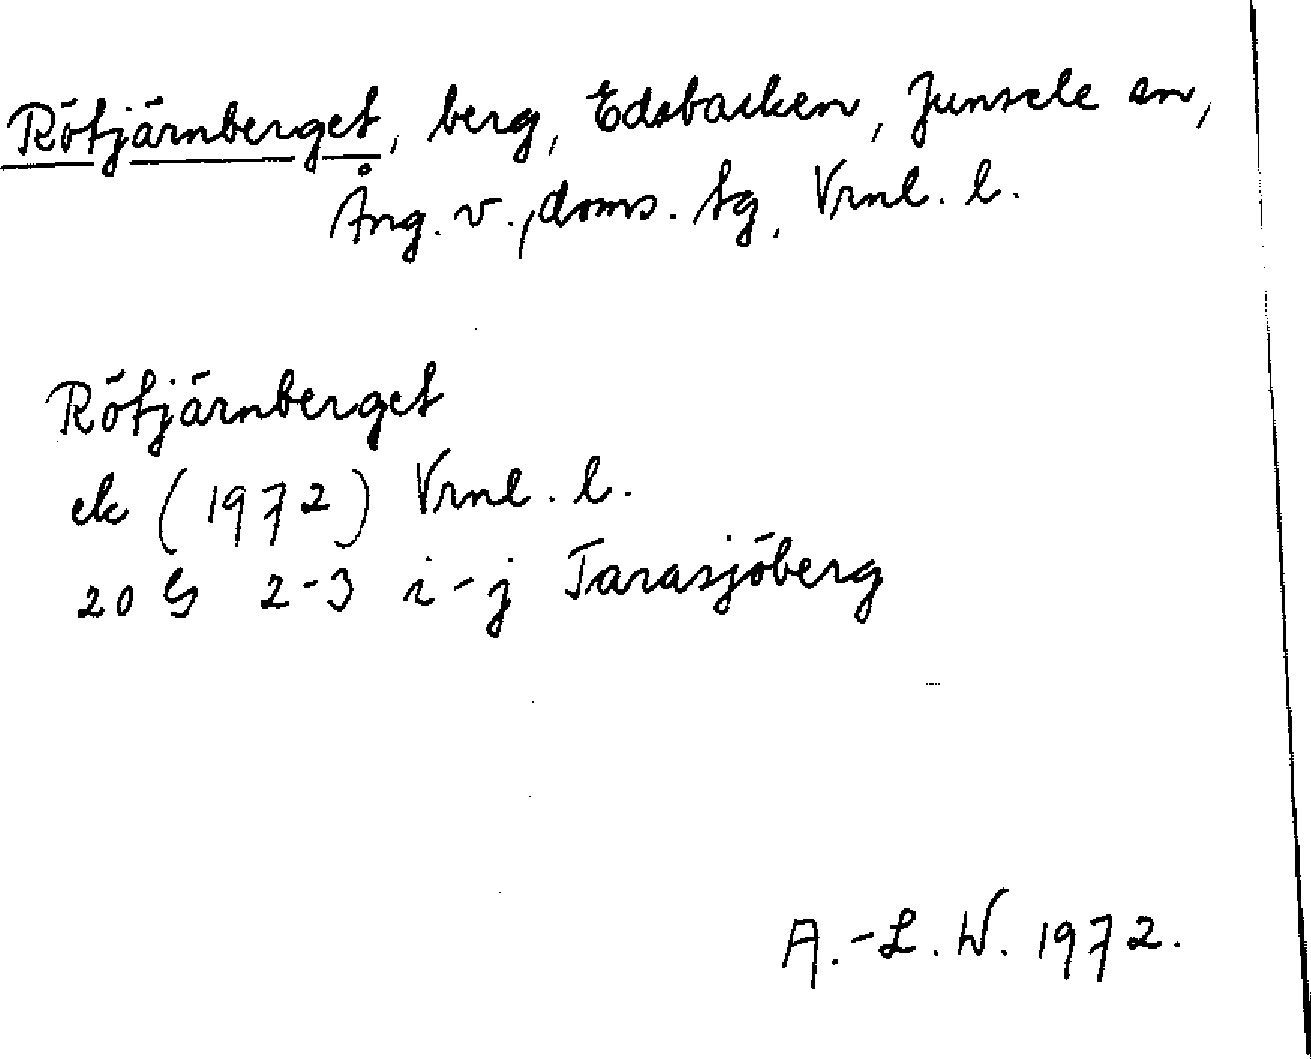 Rötjärnberget, berg, Edsbacken, Junsele sn,
Ång. v., doms. tg, Vrnl. l.
Rötjärnberget
ek (1972) Vrnl. l.
20 G 2-3 i-j Tarasjöberg
A.-L. W. 1972.